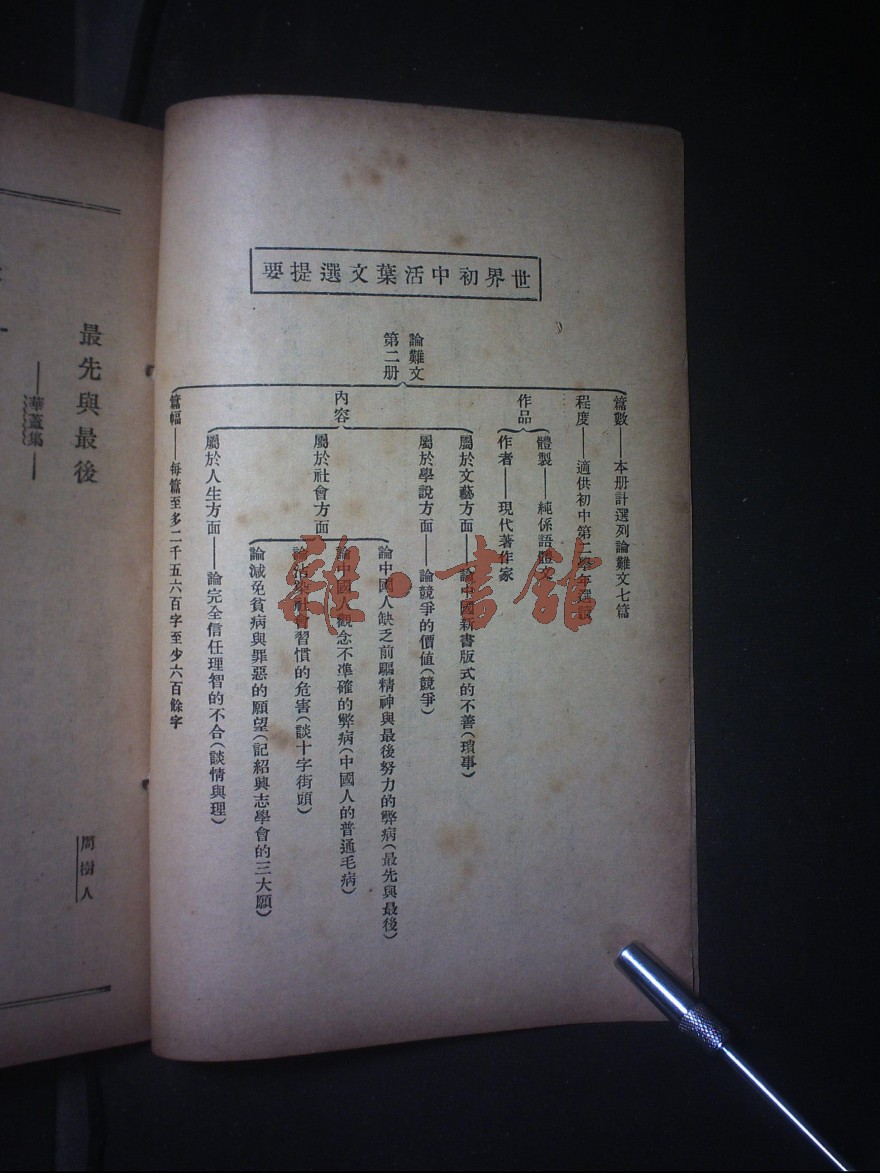 世界初中活葉文選提要
論難文
第二册
篇數——本册計選列論難文七篇
程度——適供初中第二學年選讀
作品
體製——純係語體文
作者——現代著作家
內容
屬於文藝方面——論中國新書版式的不善(瑣事)
屬於學說方面——論競爭的價值(競爭)
屬於社會方面
論中國人缺乏前驅精神與最後努力的弊病(最先與最後)
論中國人觀念不準確的弊病(中國人的普通毛病)
論沾染社會習慣的危害(談十字街頭)
論減免貧病與罪惡的願望(記紹興志學會的三大願)
屬於人生方面——論完全信任理智的不合(談情與理)
篇幅——每篇至多二千五六百字至少六百餘字
雜·書舘
最先與最後
——華蓋集——
周樹人